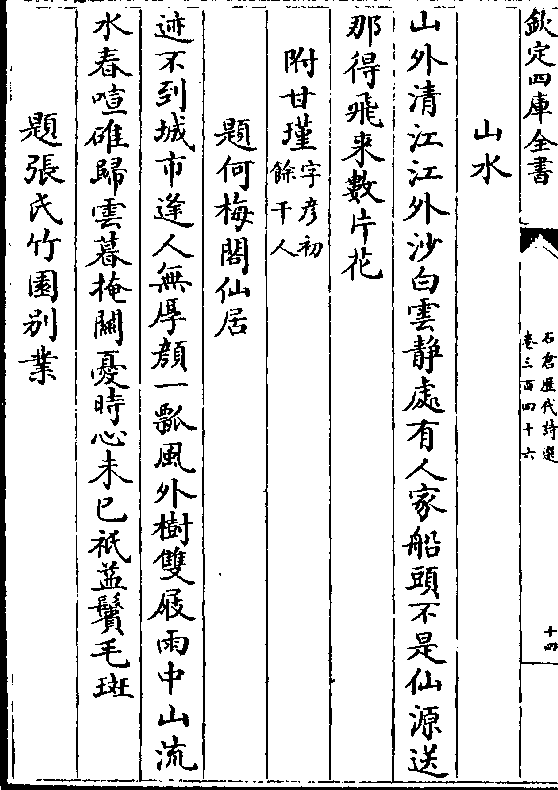 欽定四庫全書
石倉歷代詩選
卷三百四十六
十四
山水
山外清江江外沙白雲静處有人家船頭不是仙源送
那得飛来數片花
附甘瑾字彦初
餘干人
題何梅閣仙居
迹不到城市逢人無厚顔一瓢風外樹雙屐雨中山流
水春喧碓歸雲暮掩關憂時心未已祇益鬢毛斑
題張氏竹園别業